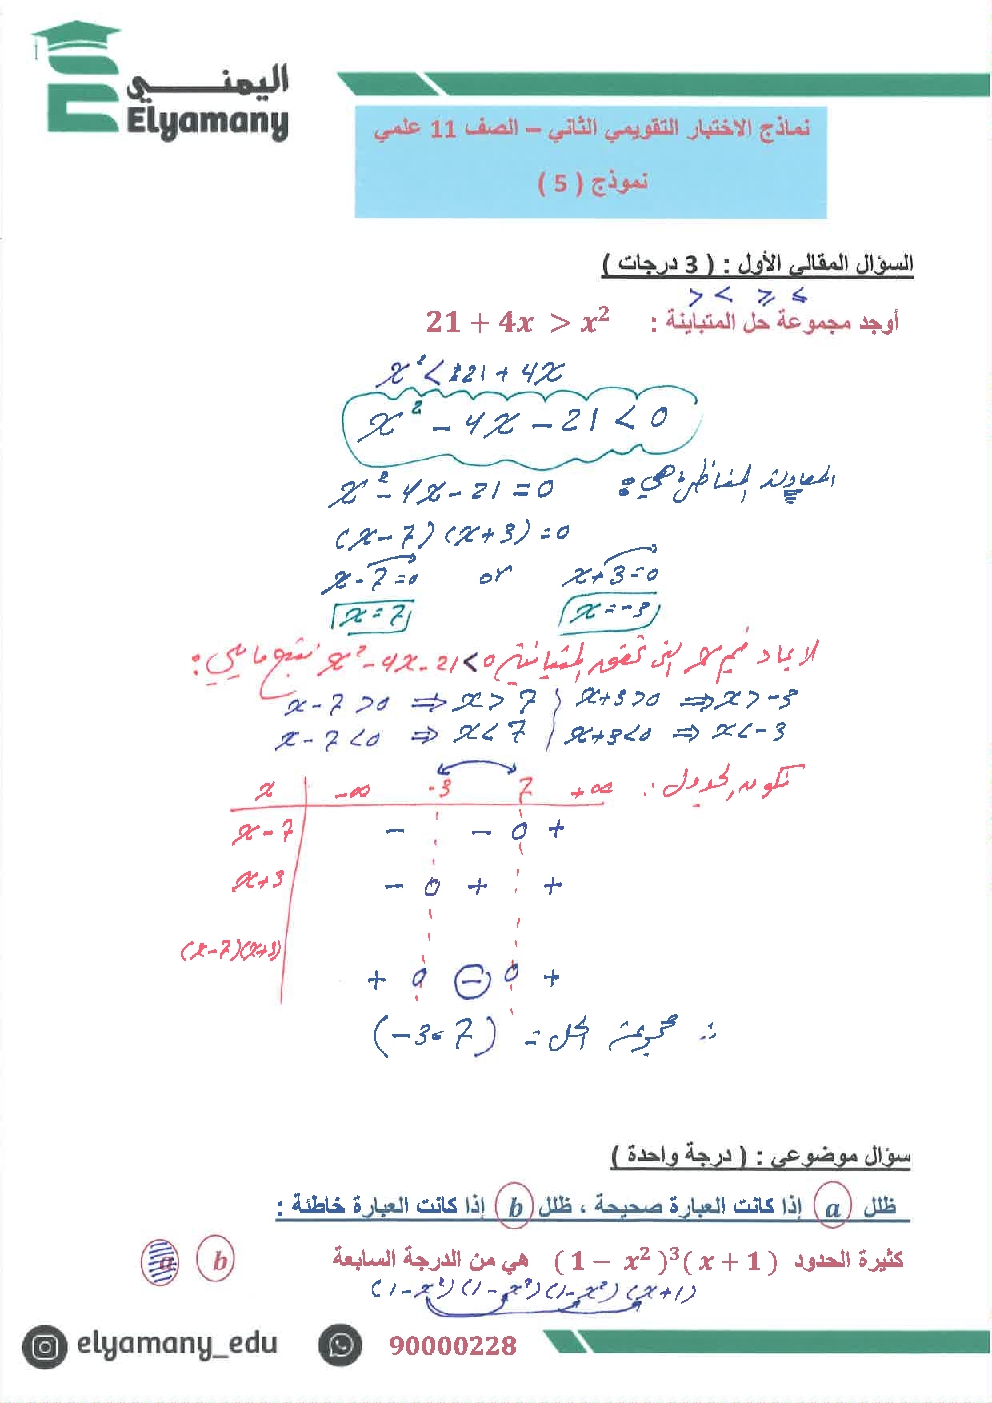 اليمني
Elyamany
نماذج الاختبار التقويمي الثاني – الصف 11 علمي
نموذج ( 5 )
السؤال المقالي الأول : ( 3 درجات )
> < ≥ ≤
أوجد مجموعة حل المتباينة : 21 + 4x > x²
x² < 21 + 4x
x² - 4x - 21 < 0
المعادلة المناظرة هي :
x² - 4x - 21 = 0
(x - 7) (x + 3) = 0
x - 7 = 0 or x + 3 = 0
x = 7 x = -3
لايجاد قيم x التي تحقق المتباينة x² - 4x - 21 < 0 نتبع ما يلي :
x - 7 > 0 ⇒ x > 7 x + 3 > 0 ⇒ x > -3
x - 7 < 0 ⇒ x < 7 x + 3 < 0 ⇒ x < -3
نكون الجدول :
x -∞ -3 7 +∞
x - 7 - - 0 +
x + 3 - 0 + +
(x - 7)(x + 3)
+ 0 - 0 +
∴ مجموعة الحل = (-3 ، 7)
سؤال موضوعي : ( درجة واحدة )
ظلل a إذا كانت العبارة صحيحة ، ظلل b إذا كانت العبارة خاطئة :
كثيرة الحدود (1 − x²)³(x + 1) هي من الدرجة السابعة a b
(1 - x²) (1 - x²) (1 - x²) (x + 1)
elyamany_edu 90000228